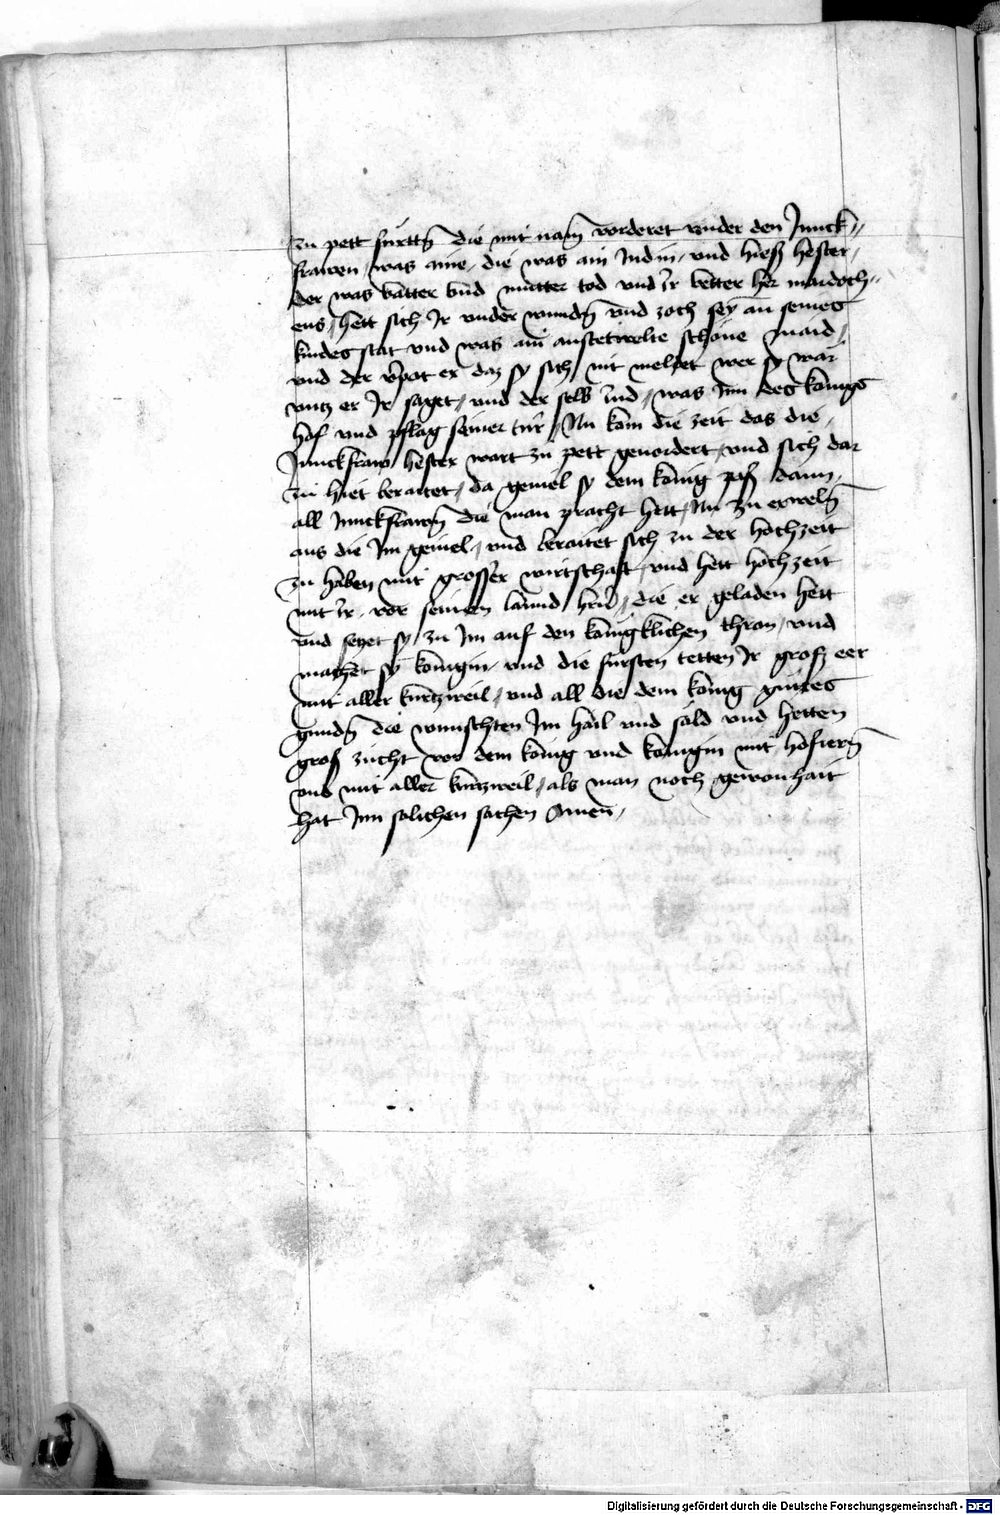 zu pett furttn̄ die mit nam̄ vorderet vnder den Junck„
frawen / was aine / die was ain Judin / vnd hieß hester /
der was vatter vnd mutter tod vnd ir vetter her mardoch„
eus / hett sich Ir vnder wundn̄ vnd zoch sey an seines
kindes stat vnd was ain schöne maid /
vnd der v̄pot er daz sy sich nit meldet wer sy war
vntz er Ir saget / vnd der selb Jud / was Inn des königs
hof vnd pflag seiner tür / Nu kom die zeit das die /
Junckfraw hester wart zü pett geuordert / vnd sich dar
zü hiet beraitet / da geuiel sy dem konig paß dann /
all Junckfrawn̄ die man pracht hett / Nu zu erweln̄
aus die Im geuiel / vnd beraitet sich zu der hochzeit
zu haben mit grosser wirtschaft / vnd hett hochzeit
mit ir / vor seinen lannd hrn̄ / die er geladen hett
vnd setzet sy / zu Im auf den königklichen thron / vnd
machet sy königin / vnd die fürsten tetten Ir groß eer
mit aller kurtzweil / vnd all die dem konig gütes
gundn̄ die wunschten Im hail vnd säld vnd hetten
groß zücht vor dem konig vnd königin mit hofiern̄
vnd mit aller kurtzweil / als man noch gewonhait
hat Inn solichen sachen Amen /
Digitalisierung gefördert durch die Deutsche Forschungsgemeinschaft - DFG